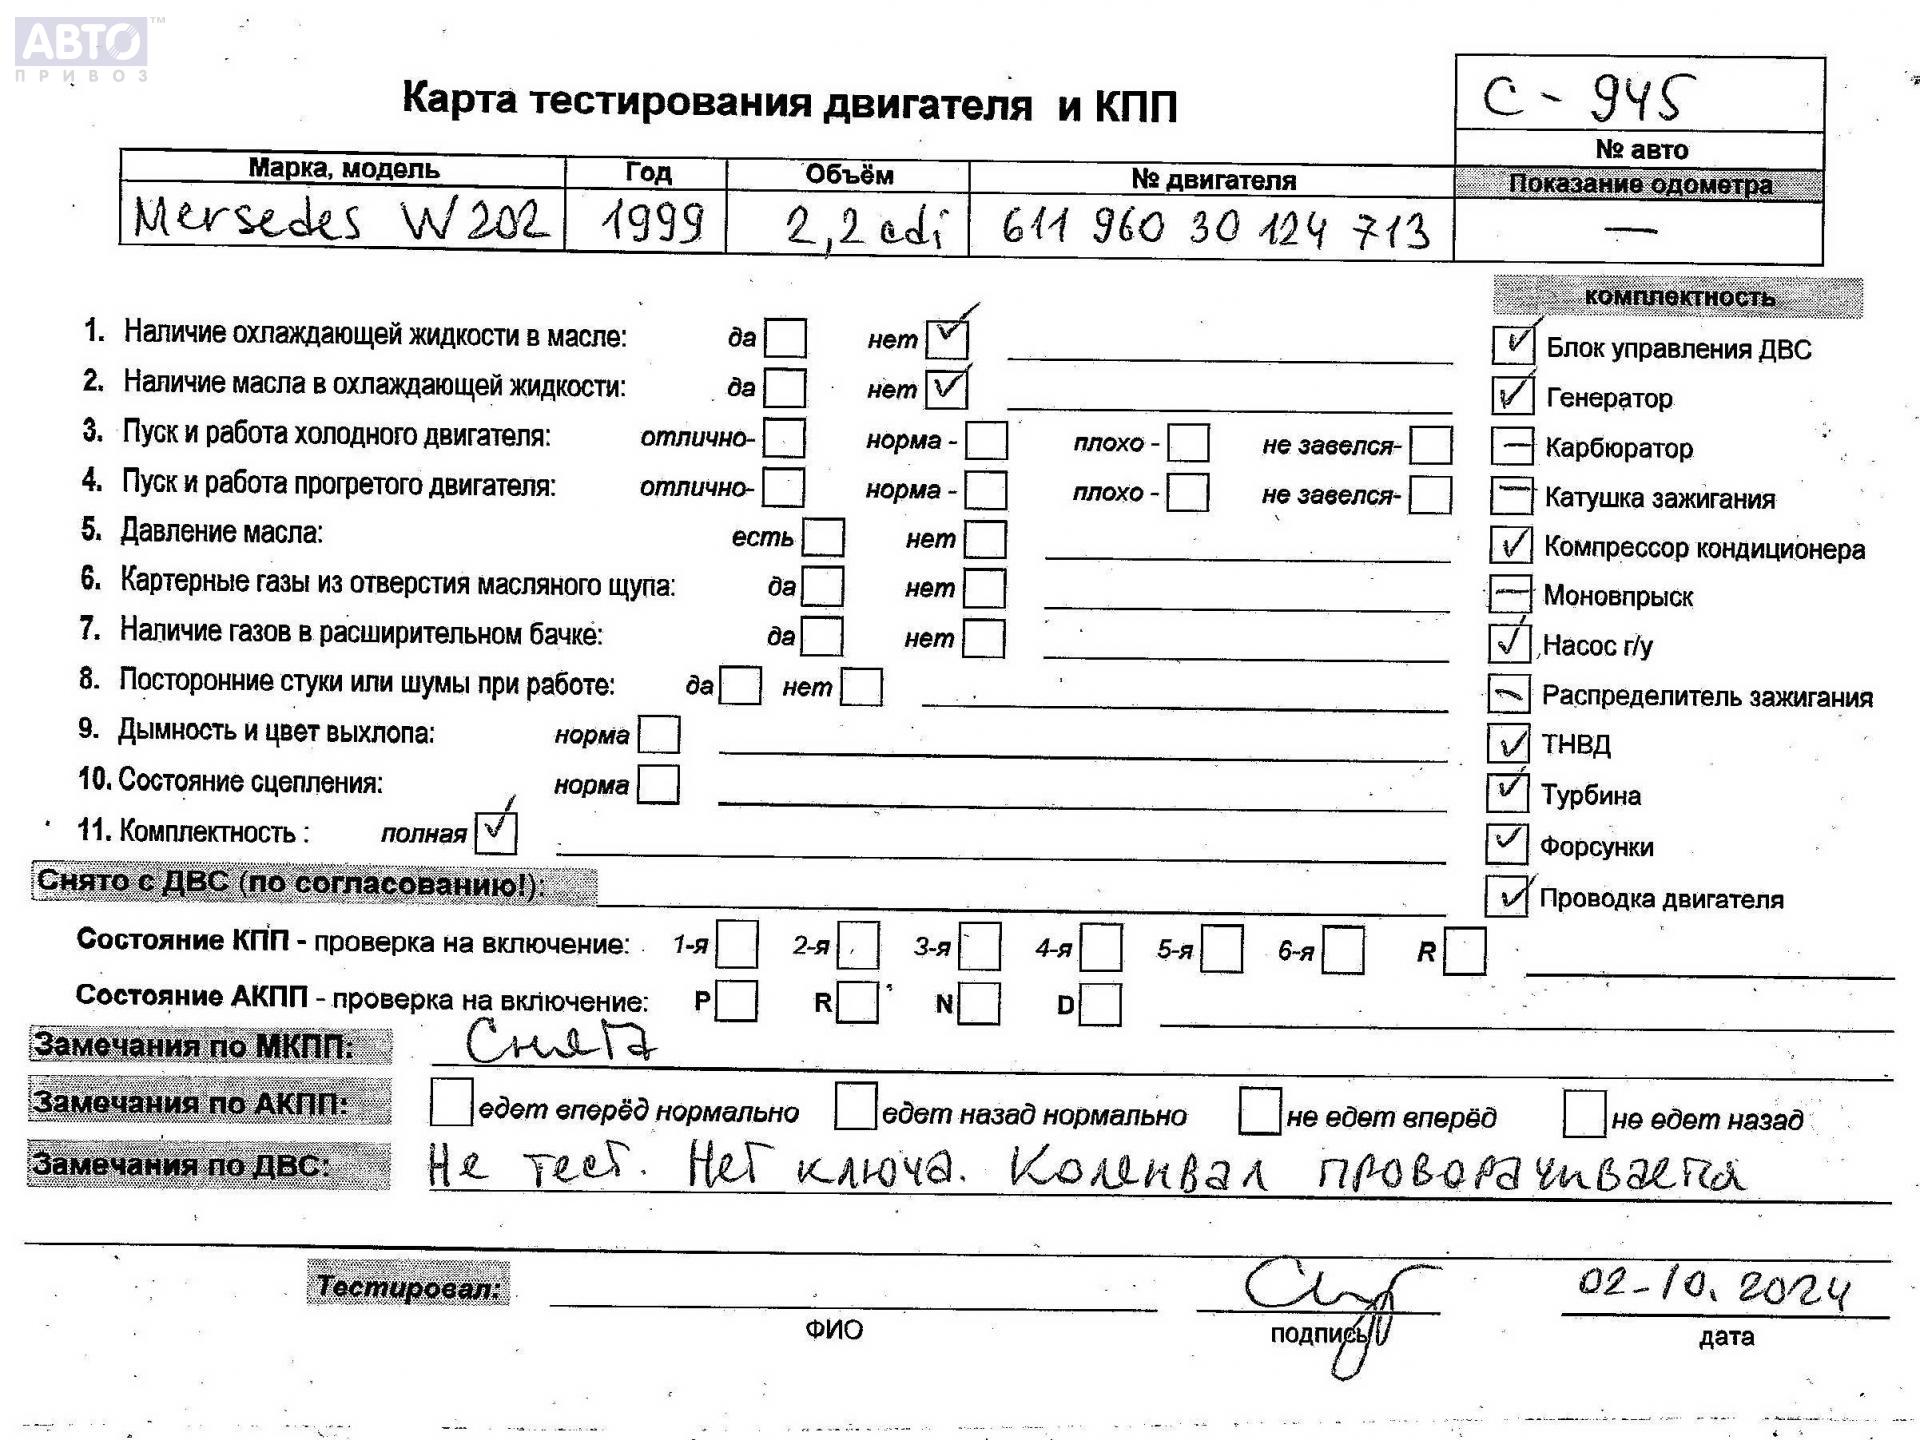 АВТО™
ПРИВОЗ
Карта тестирования двигателя и КПП
С - 945
№ авто
Марка, модель Год Объём № двигателя Показание одометра
Mersedes W202 1999 2,2 cdi 611 960 30 124 713 —
комплектность
1. Наличие охлаждающей жидкости в масле: да нет ✓
Блок управления ДВС ✓
2. Наличие масла в охлаждающей жидкости: да нет ✓
Генератор ✓
3. Пуск и работа холодного двигателя: отлично- норма - плохо - не завелся-
Карбюратор —
4. Пуск и работа прогретого двигателя: отлично- норма - плохо - не завелся-
Катушка зажигания —
5. Давление масла: есть нет
Компрессор кондиционера ✓
6. Картерные газы из отверстия масляного щупа: да нет
Моновпрыск —
7. Наличие газов в расширительном бачке: да нет
Насос г/у ✓
8. Посторонние стуки или шумы при работе: да нет
Распределитель зажигания —
9. Дымность и цвет выхлопа: норма
ТНВД ✓
10. Состояние сцепления: норма
Турбина ✓
11. Комплектность : полная ✓
Форсунки ✓
Снято с ДВС (по согласованию!):
Проводка двигателя ✓
Состояние КПП - проверка на включение: 1-я 2-я 3-я 4-я 5-я 6-я R
Состояние АКПП - проверка на включение: P R N D
Замечания по МКПП: Снята
Замечания по АКПП: едет вперёд нормально едет назад нормально не едет вперёд не едет назад
Замечания по ДВС: Не тест. Нет ключа. Коленвал проворачивается
Тестировал: 02-10.2024
ФИО подпись дата